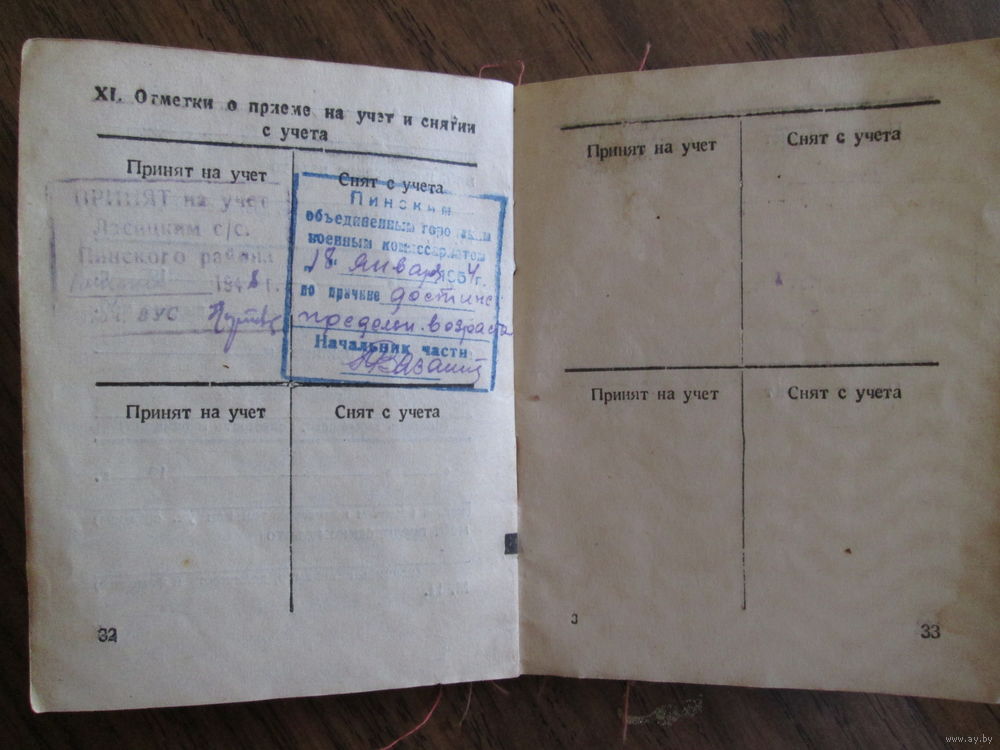 XI. Отметки о приеме на учет и снятии
с учета
Принят на учет
Снят с учета
ПРИНЯТ на учет
Ласицким с/с.
Пинского района
194 г.
ВУС
Пинским
объединенным городским
военным комиссариатом
"18" января 1954 г.
по причине достиж
пределн. возраста
Начальник части
Принят на учет
Снят с учета
32
Принят на учет
Снят с учета
Принят на учет
Снят с учета
3
33
www.ay.by